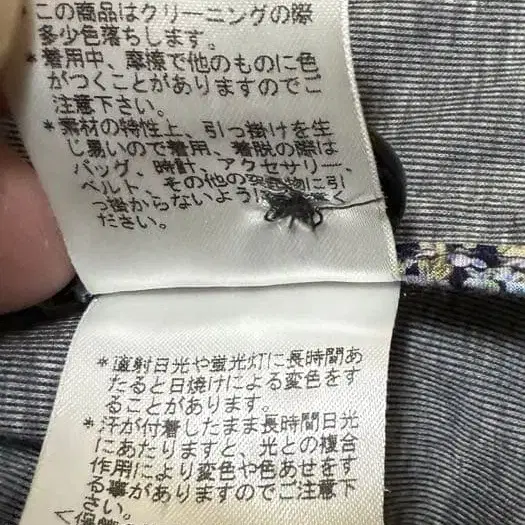 この商品はクリーニングの際
多少色落ちします。
*着用中、摩擦で他のものに色
がつくことがありますのでご
注意下さい。
*素材の特性上、引っ掛けを生
じ易いので着用、着脱の際は
バッグ、時計、アクセサリー、
ベルト、その他の突起物に引
っ掛からないように く
ださい。
*直射日光や蛍光灯に長時間あ
たると日焼けによる変色をす
ることがあります。
*汗が付着したまま長時間日光
にあたりますと、光との複合
作用により変色や色あせをす
る事がありますのでご注意下
さい。